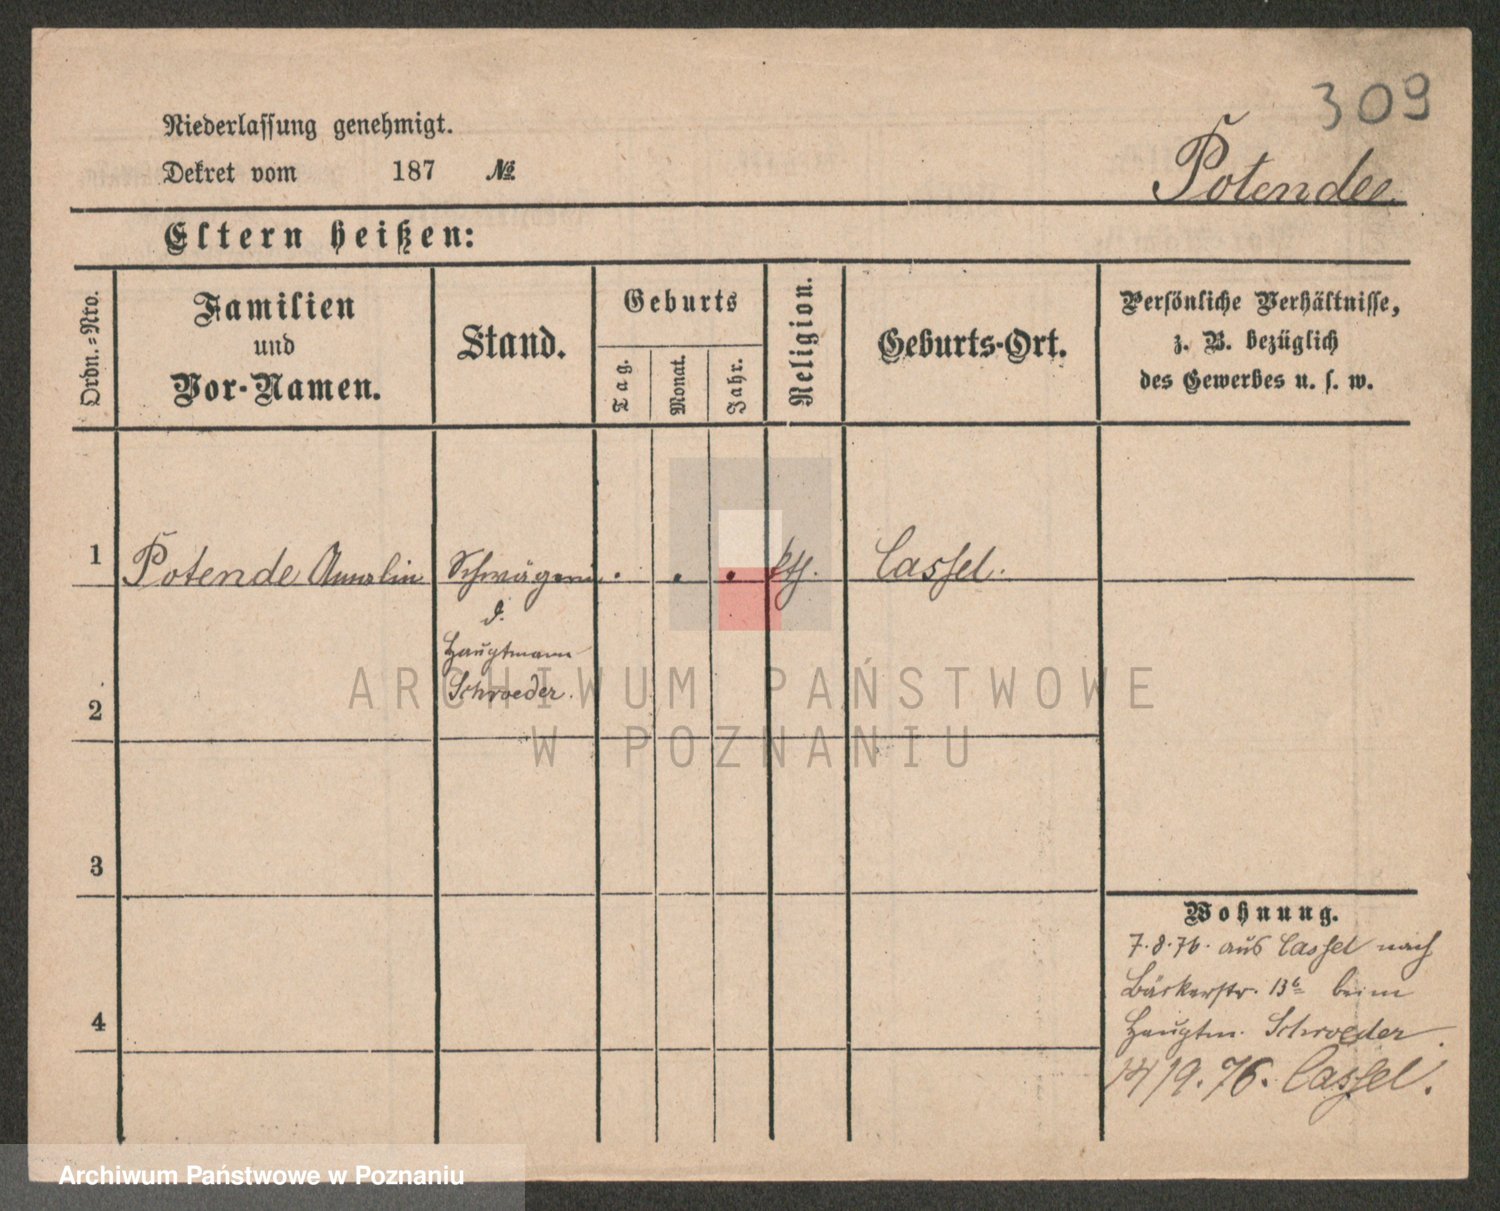 309
Niederlassung genehmigt.
Dekret vom 187 №
Potendee
Eltern heißen:
Ordn.-Nro.
Familien
und
Vor-Namen.
Stand.
Geburts
Tag.
Monat.
Jahr.
Religion.
Geburts-Ort.
Persönliche Verhältnisse,
z. B. bezüglich
des Gewerbes u. s. w.
1 Potende Amalin Schwägerin . . . kth. Cassel.
d.
Hauptmann
Schroeder.
2
3
4
Wohnung.
7.8.76. aus Cassel nach
Bäckerstr. 13b beim
Hauptm. Schroeder.
14/9.76. Cassel.
ARCHIWUM PAŃSTWOWE
W POZNANIU
Archiwum Państwowe w Poznaniu